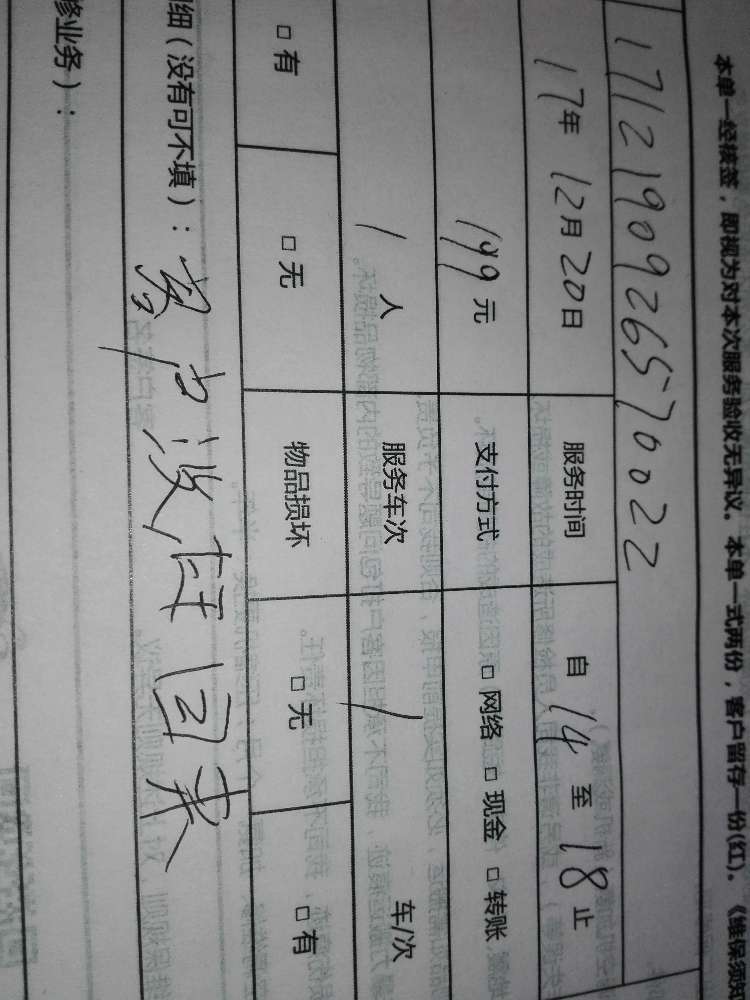 本单一经核签，即视为对本次服务验收无异议。本单一式两份，客户留存一份(红)。《维保须知
1712190926570022
17年 12月 20日 服务时间 自 14 至 18 止
199元 支付方式 □ 网络 □ 现金 □ 转账
1 人 服务车次 / 车/次
□ 有 □ 无 物品损坏 □ 无 □ 有
细（没有可不填）： 客户没赶回来
修业务）：